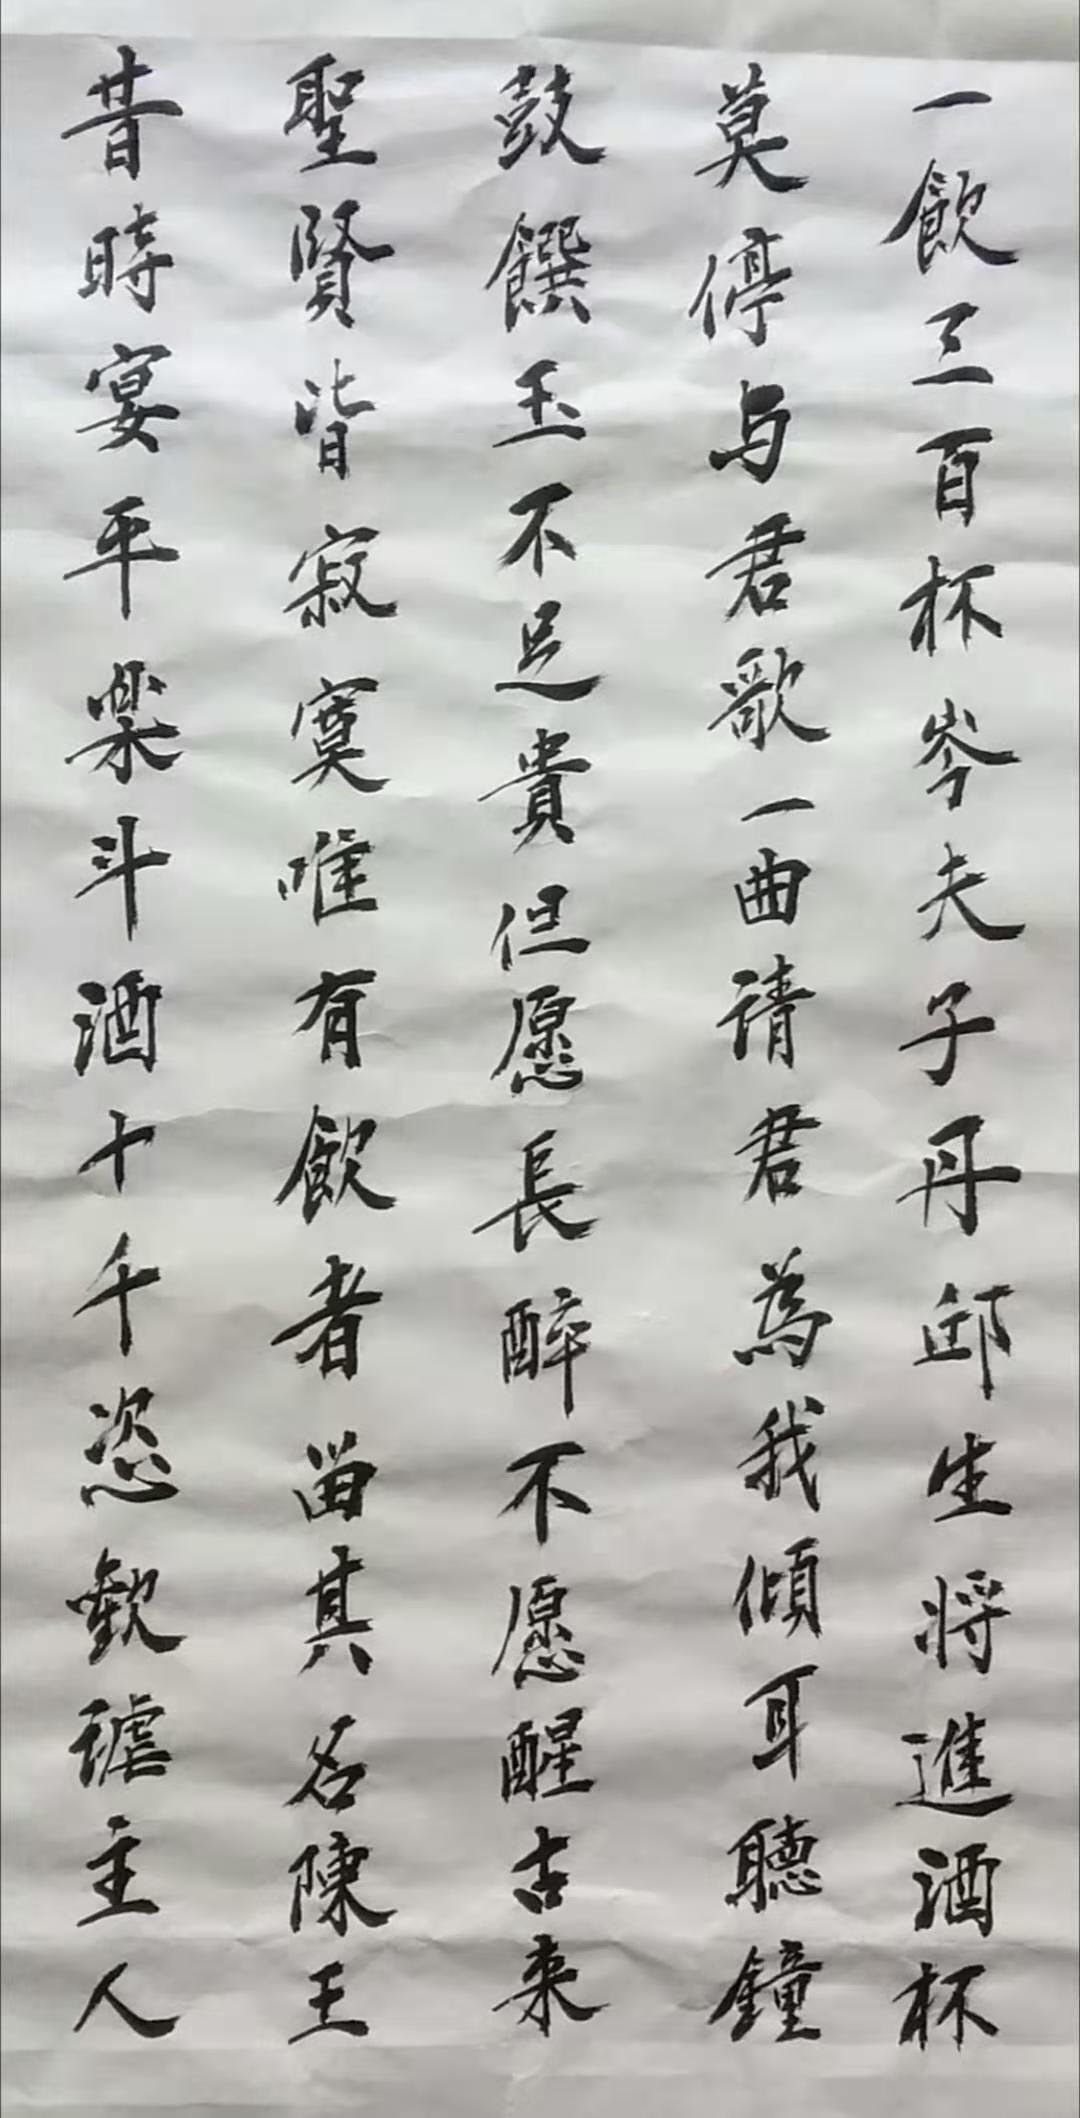 一飲三百杯岑夫子丹邱生将進酒杯
莫停与君歌一曲请君為我傾耳聽鐘
鼓饌玉不足貴但愿長醉不愿醒古来
聖賢皆寂寞唯有飲者留其名陳王
昔時宴平樂斗酒十千恣歡謔主人